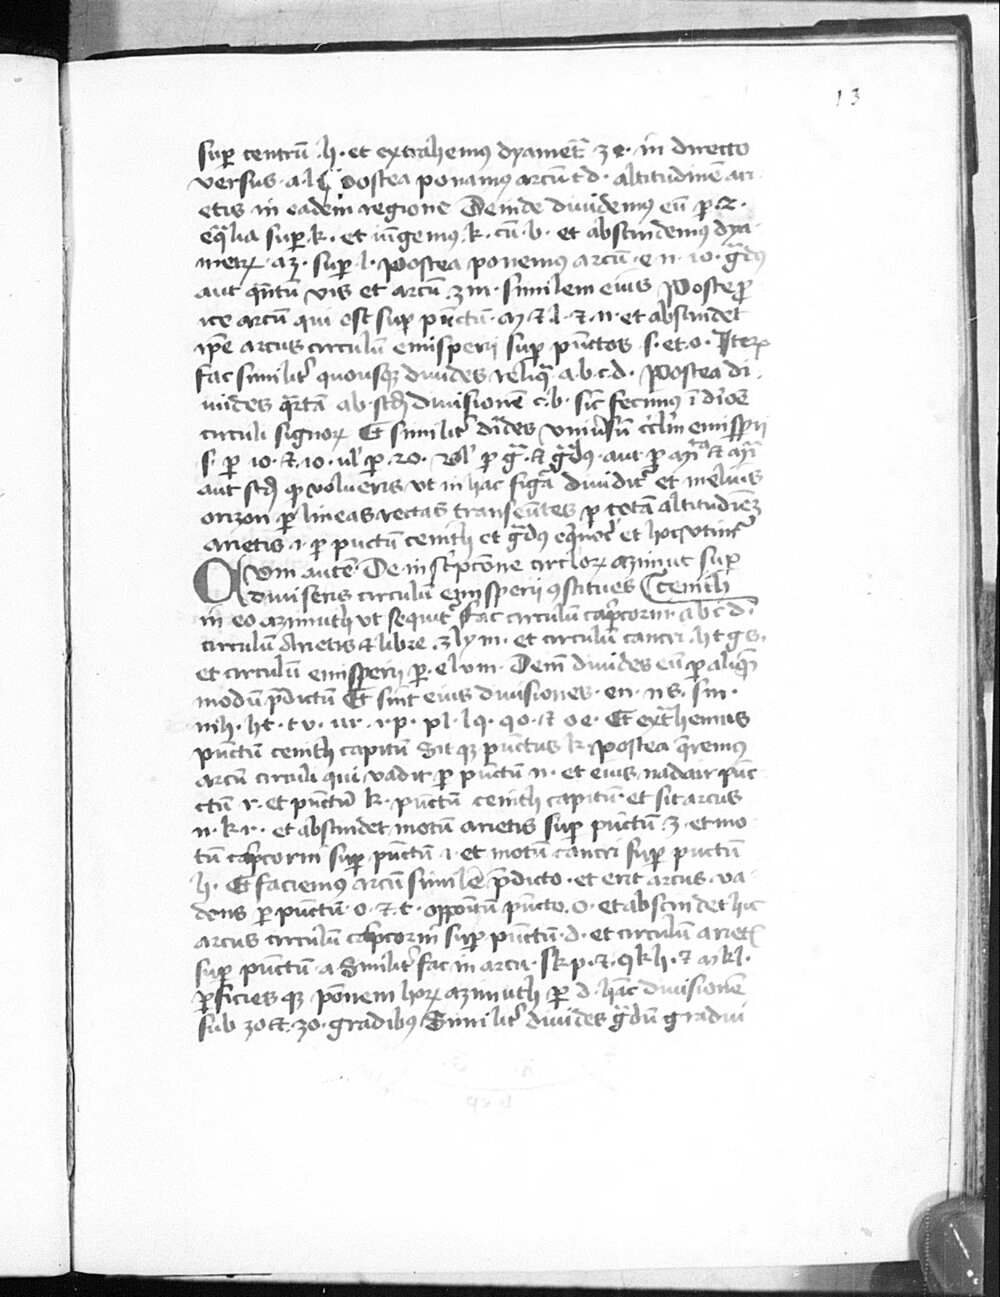 13
sup centrū .h. et extrahemus dyamet͛ z e. in directo
versus .a.l postea ponamus arcū t d. altitudinē ari
etis in eadem regione Deinde diuidemus eū p .2.
eqlia sup .k. et iūgemus .k. cū .b. et abscindemus dya
metꝝ .az. sup .l. postea ponemus arcū .e n. 10. gdus
aut qntū vis et arcū .z m. similem eius Poste pro
ice arcū qui est sup pūctū .m et l. et .n. et abscindet
ipe arcus circulū emisperii sup pūctos .s. et .o. Iteꝝ
fac similit quousqꝫ diuides reliq a.b.c.d. Postea di
uides qrtā ab. scdm diuisionē c.b. sic fecimus ī dioē
circuli signoꝝ Et similit diuides vniūsū circlm emisperii
s. p 10. et .10. ul p .20. Vl p g et gdus. aut p
aut scdm qd volueris vt in hac figa diuidit et
orizon p lineas rectas transeūtes p totā altitudinē
arietis .i. p puctū cenith et gdus eqnoc et hoc
Qvm autē De inscripcōne circloꝝ azimut sup
diuiseris circulū emisperii ꝯstitues cenith
in eo azimuth vt sequit fac circulū capcorni .a b c d.
circulū Arietis et libre .z l y m. et circulū cancri .h t g s.
et circulū emisperii p .e l v m. Dein diuides eū p aliqm
modū pdictū Et sint eius diuisiones .e n. n s. s m.
m h. h t. t v. u r. r p. p l. l q. q o. et o e. Et exthemus
pūctū cenith capitū Sit qꝫ pūctus k. postea qremus
arcū circuli qui vadit p pūctū n. et eius nadair pūc
ctū r. et pūctū k. pūctū cenith capitū et sit arcus
n. k r. et abscindet motū arietis sup pūctū .z. et mo
tū capcorni sup pūctū .i. et motū cancri sup puctū
h. Et faciemus arcū simile pdicto. et erit arcus va
dens p pūctū .o. et .t. oppoitū pūcto .o. et abscindet hic
arcus circulū capcorni sup pūctū .d. et circulū ariet
sup pūctū .a Similit fac in arcu .s k p. et .q k h. et m k l.
pficies qꝫ pōnem hoꝝ azimuth p d. hāc diuisionē
sub 30 et .30. gradibus Similit diuides gdū gradui